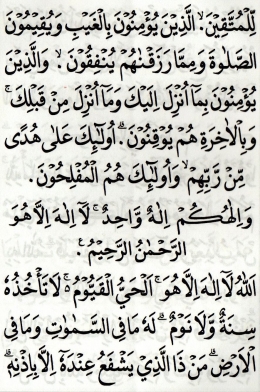 لِلْمُتَّقِيْنَ ۙ الَّذِيْنَ يُؤْمِنُوْنَ بِالْغَيْبِ وَيُقِيْمُوْنَ
الصَّلٰوةَ وَمِمَّا رَزَقْنٰهُمْ يُنْفِقُوْنَ ۙ وَالَّذِيْنَ
يُؤْمِنُوْنَ بِمَآ اُنْزِلَ اِلَيْكَ وَمَآ اُنْزِلَ مِنْ قَبْلِكَ ۚ
وَبِالْاٰخِرَةِ هُمْ يُوْقِنُوْنَ ۗ اُولٰٓئِكَ عَلٰى هُدًى
مِّنْ رَّبِّهِمْ ۙ وَاُولٰٓئِكَ هُمُ الْمُفْلِحُوْنَ ۔
وَاِلٰهُكُمْ اِلٰهٌ وَّاحِدٌ ۚ لَآ اِلٰهَ اِلَّا هُوَ
الرَّحْمٰنُ الرَّحِيْمُ ۚ
اَللهُ لَآ اِلٰهَ اِلَّا هُوَ ۚ اَلْحَيُّ الْقَيُّوْمُ ۚ لَا تَأْخُذُهٗ
سِنَةٌ وَّلَا نَوْمٌ ۗ لَهٗ مَا فِى السَّمٰوٰتِ وَمَا فِى
الْاَرْضِ ۗ مَنْ ذَا الَّذِيْ يَشْفَعُ عِنْدَهٗٓ اِلَّا بِاِذْنِهٖ ۗ